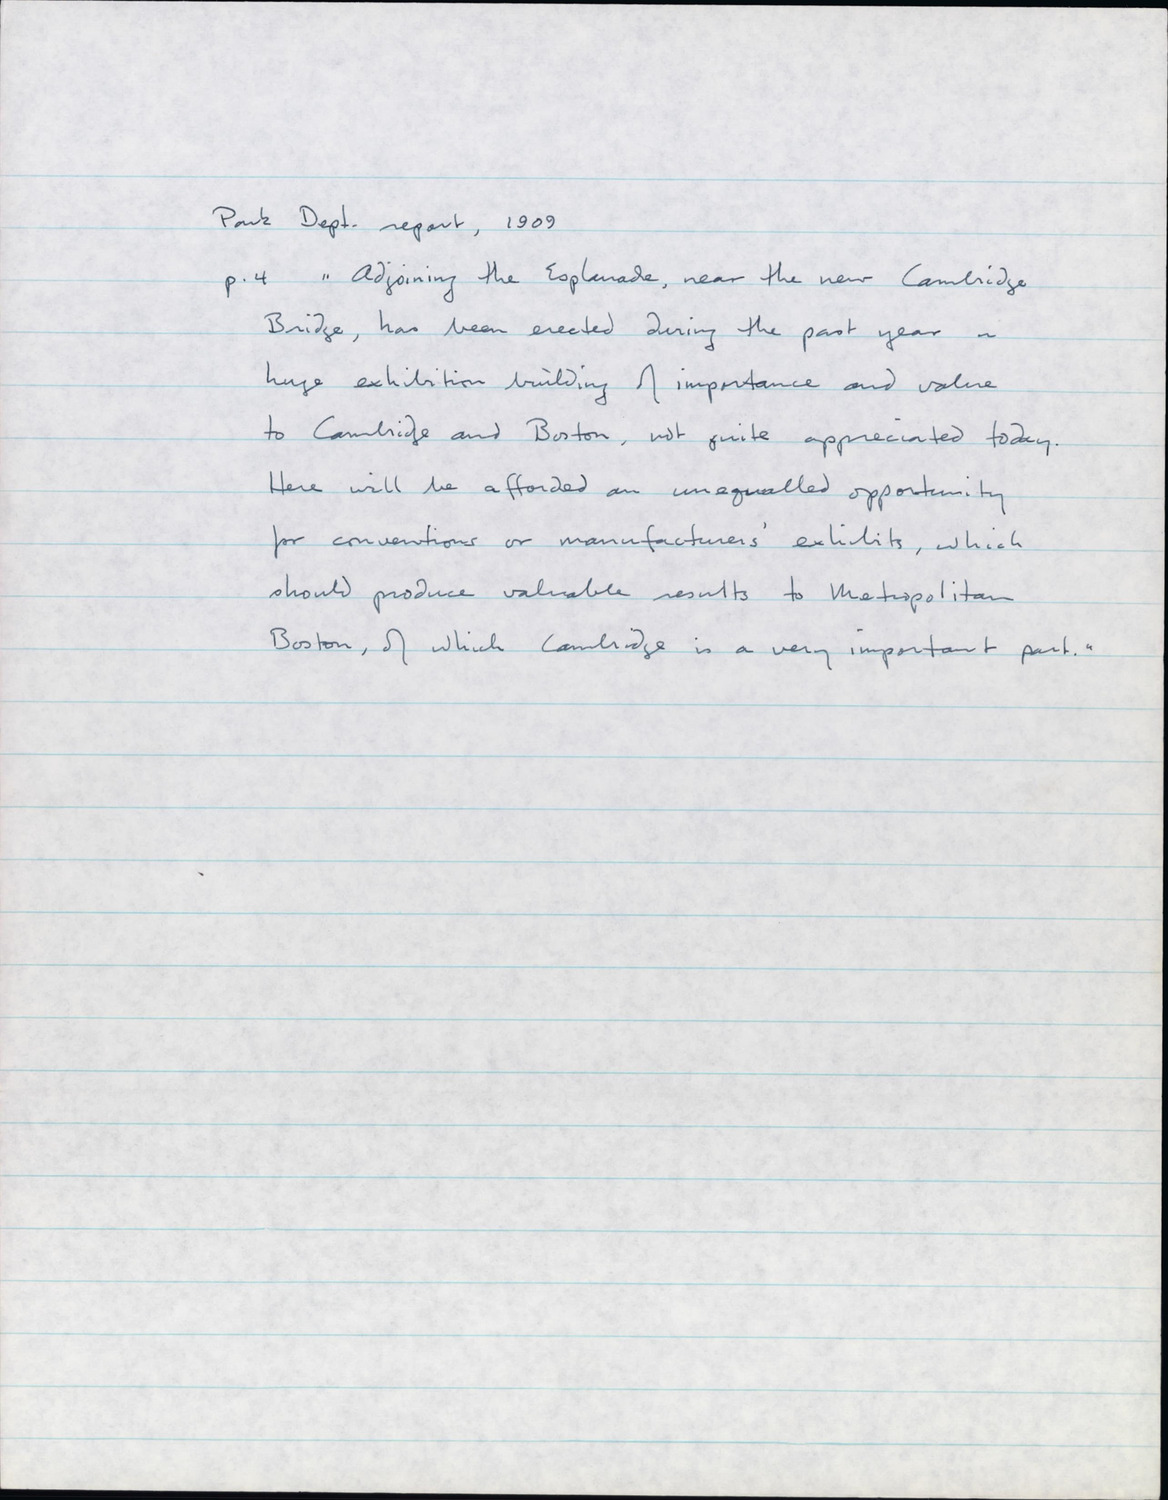 Park Dept. report, 1909
p. 4 "Adjoining the Esplanade, near the new Cambridge
Bridge, has been erected during the past year a
huge exhibition building of importance and value
to Cambridge and Boston, not quite appreciated today.
Here will be afforded an unequalled opportunity
for conventions or manufacturers' exhibits, which
should produce valuable results to Metropolitan
Boston, of which Cambridge is a very important part."